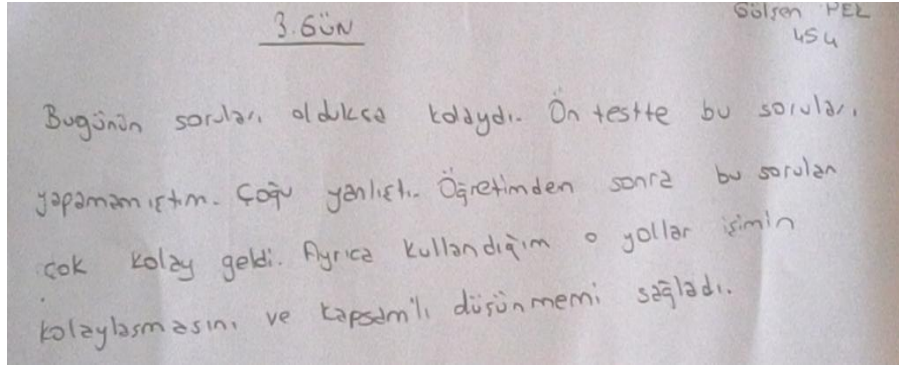 3. GÜN
Gülşen PEL
454
Bugünün soruları oldukça kolaydı. Ön testte bu soruları
yapamamıştım. Çoğu yanlıştı. Öğretimden sonra bu soruları
çok kolay geldi. Ayrıca kullandığım o yollar işimin
kolaylaşmasını ve kapsamlı düşünmemi sağladı.